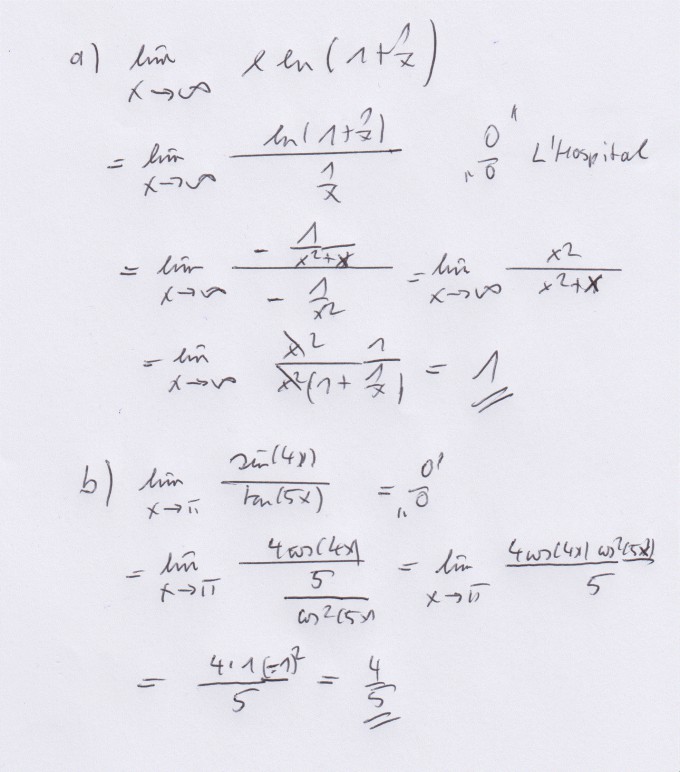 a) lim x→∞ x ln(1+1/x)
= lim x→∞ ln(1+1/x) / (1/x) "0/0" L'Hospital
= lim x→∞ (- 1/(x²+x)) / (- 1/x²) = lim x→∞ x²/(x²+x)
= lim x→∞ x²/x² 1/(1+1/x) = 1
b) lim x→π sin(4x)/tan(5x) = "0/0"
= lim x→π 4cos(4x) / (5/cos²(5x) = lim x→π 4cos(4x) cos²(5x) / 5
= 4·1(-1)²/5 = 4/5